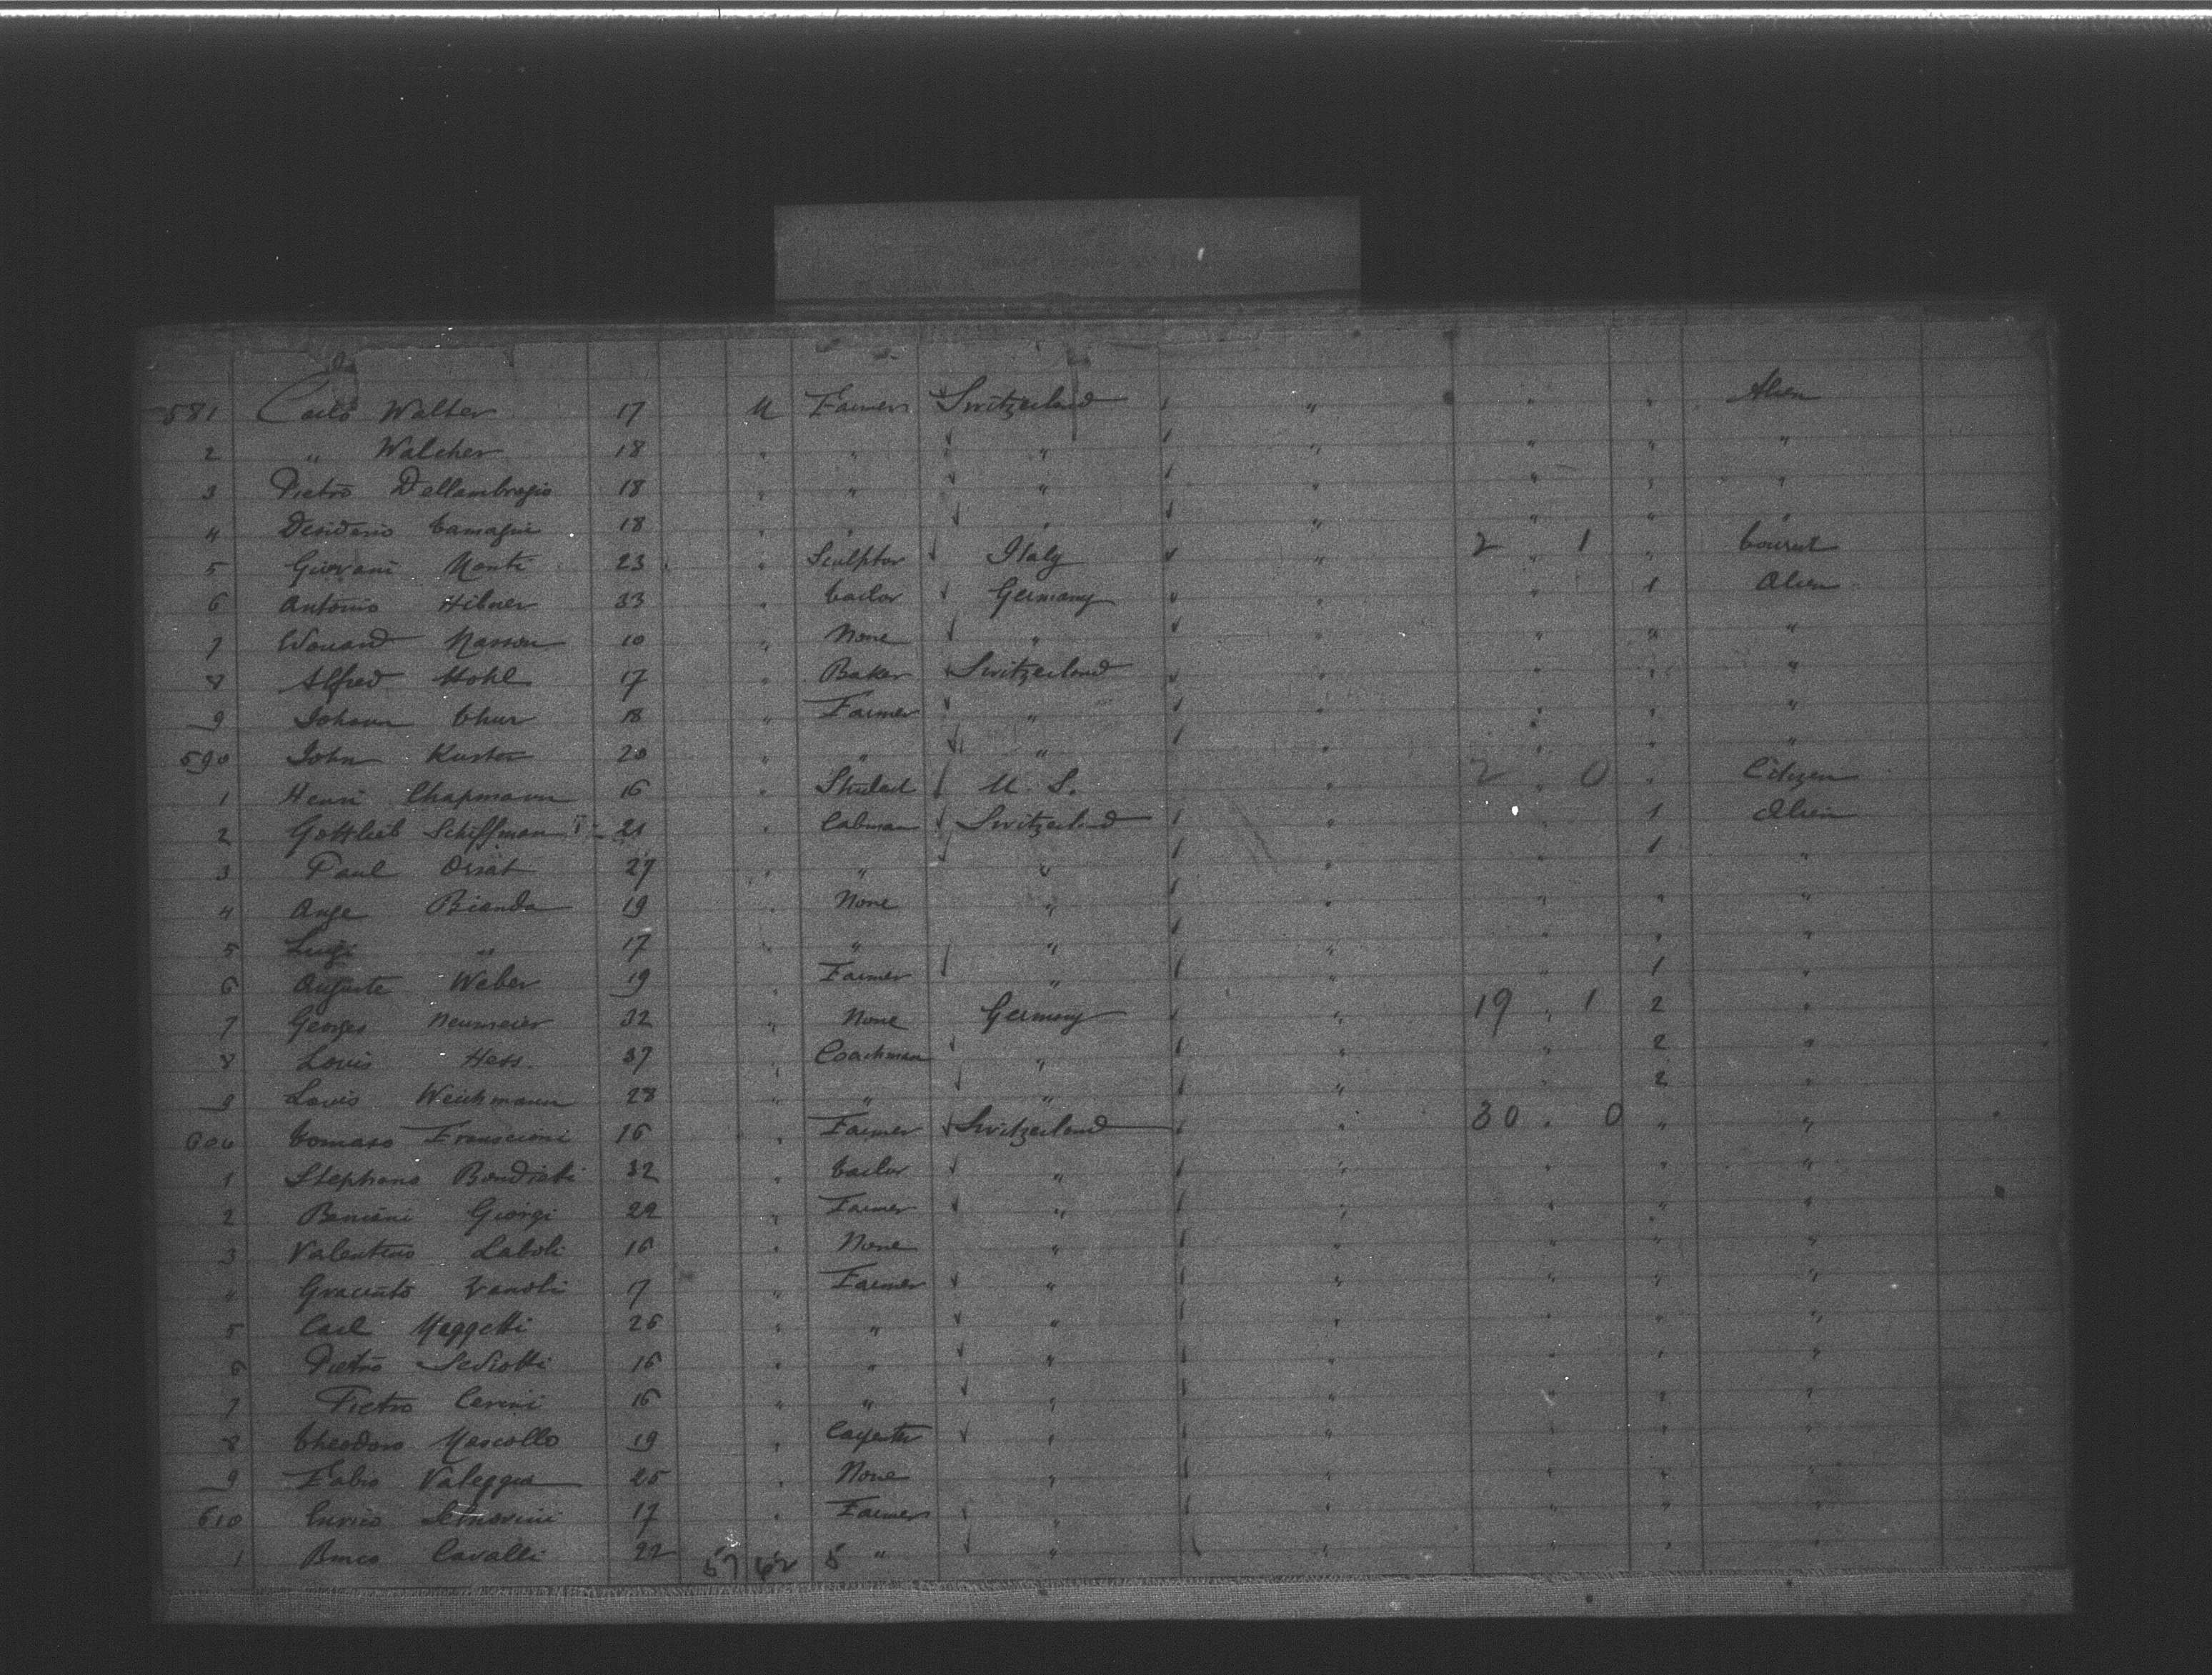 581 Carlo Walter 17 M Farmer Switzerland " " " Alien
2 " Walcher 18 " " " " " " "
3 Pietro Dellambrogio 18 " " " " " " "
4 Desiderio Camagni 18 " " " " " " "
5 Giovani Monti 23 " Sculptor Italy " 2 " 1 " Tourist
6 Antonio Hibner 33 " Tailor Germany " " 1 Alien
7 Masson 10 " None " " " " "
8 Alfred Hohl 17 " Baker Switzerland " " " "
9 Johann Thur 18 " Farmer " " " " "
590 John Kuster 20 " " " " " " "
1 Henri Chapmann 16 " Student U. S. " 2 " 0 " Citizen
2 Gottlieb Schiffman 21 " Cabman Switzerland " " 1 Alien
3 Paul Orsat 27 " " " " " 1 "
4 Ange Bianda 19 " None " " " " "
5 Luigi " 17 " " " " " " "
6 Auguste Weber 19 " Farmer " " " 1 "
7 Georges Neumeier 32 " None Germany " 19 " 1 2 "
8 Louis Hess 37 " Coachman " " " 2 "
9 Louis Weichmann 28 " " " " " 2 "
600 Tomaso Franscioni 16 " Farmer Switzerland " 30 " 0 " "
1 Stephano Bondietti 32 " Tailor " " " " "
2 Giorgi 22 " Farmer " " " " "
3 Valentino Laboli 16 " None " " " " "
4 Zanoli 17 " Farmer " " " " "
5 Carl Maggetti 26 " " " " " " "
6 Pietro 16 " " " " " " "
7 Pietro Cerini 16 " " " " " " "
8 Theodoro Mascollo 19 " " " " " "
9 Fabio Valeggia 25 " None " " " " "
610 Enrico 17 " Farmer " " " " "
1 Cavalli 22 57 62 5 " " " " " "